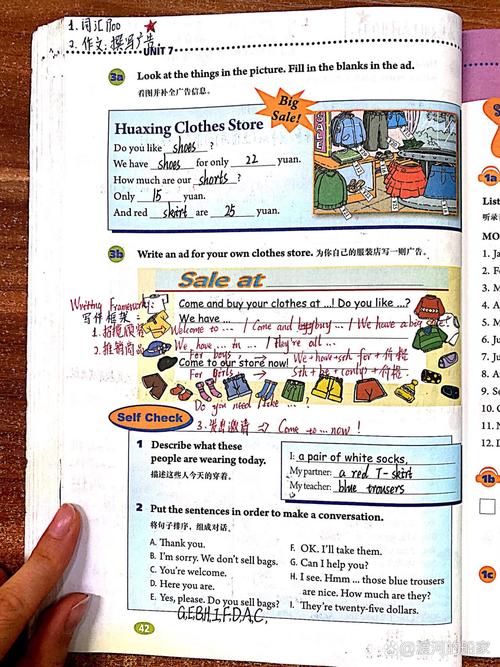 1. 词汇 P00
2. 作文：撰写广告
UNIT 7
3a Look at the things in the picture. Fill in the blanks in the ad.
看图并补全广告信息。
Big Sale!
Huaxing Clothes Store
Do you like shoes ?
We have shoes for only 22 yuan.
How much are our shorts ?
Only 15 yuan.
And red skirt are 25 yuan.
SALE
3b Write an ad for your own clothes store. 为你自己的服装店写一则广告。
Sale at
Come and buy your clothes at ...! Do you like ...?
We have ...
Come to our store now!
Writing Framework:
写作框架：
1. 招揽顾客
Welcome to ... / Come and buy ... / We have a big sale!
2. 推销商品
We have ... in ... / They're all ...
For boys, → We + have + sth for + 价格
For girls, → Sth + be + (only) + 价格.
Do you need / like ... ?
3. 发出邀请 → Come to ... now !
Self Check
1 Describe what these people are wearing today.
描述这些人今天的穿着。
I: a pair of white socks,
My partner: a red T-skirt
My teacher: blue trousers
2 Put the sentences in order to make a conversation.
将句子排序，组成对话。
A. Thank you.
B. I'm sorry. We don't sell bags.
C. You're welcome.
D. Here you are.
E. Yes, please. Do you sell bags?
F. OK. I'll take them.
G. Can I help you?
H. I see. Hmm ... those blue trousers are nice. How much are they?
I. They're twenty-five dollars.
G,E,B,H,I,F,D,A,C,
42
1a
List
听录
MO
1. J
2. F
3. M
4. A
5. M
6. Ju
7. Ju
8. A
9. S
10. O
11. N
12. D
1b
1c
@渡河的船家